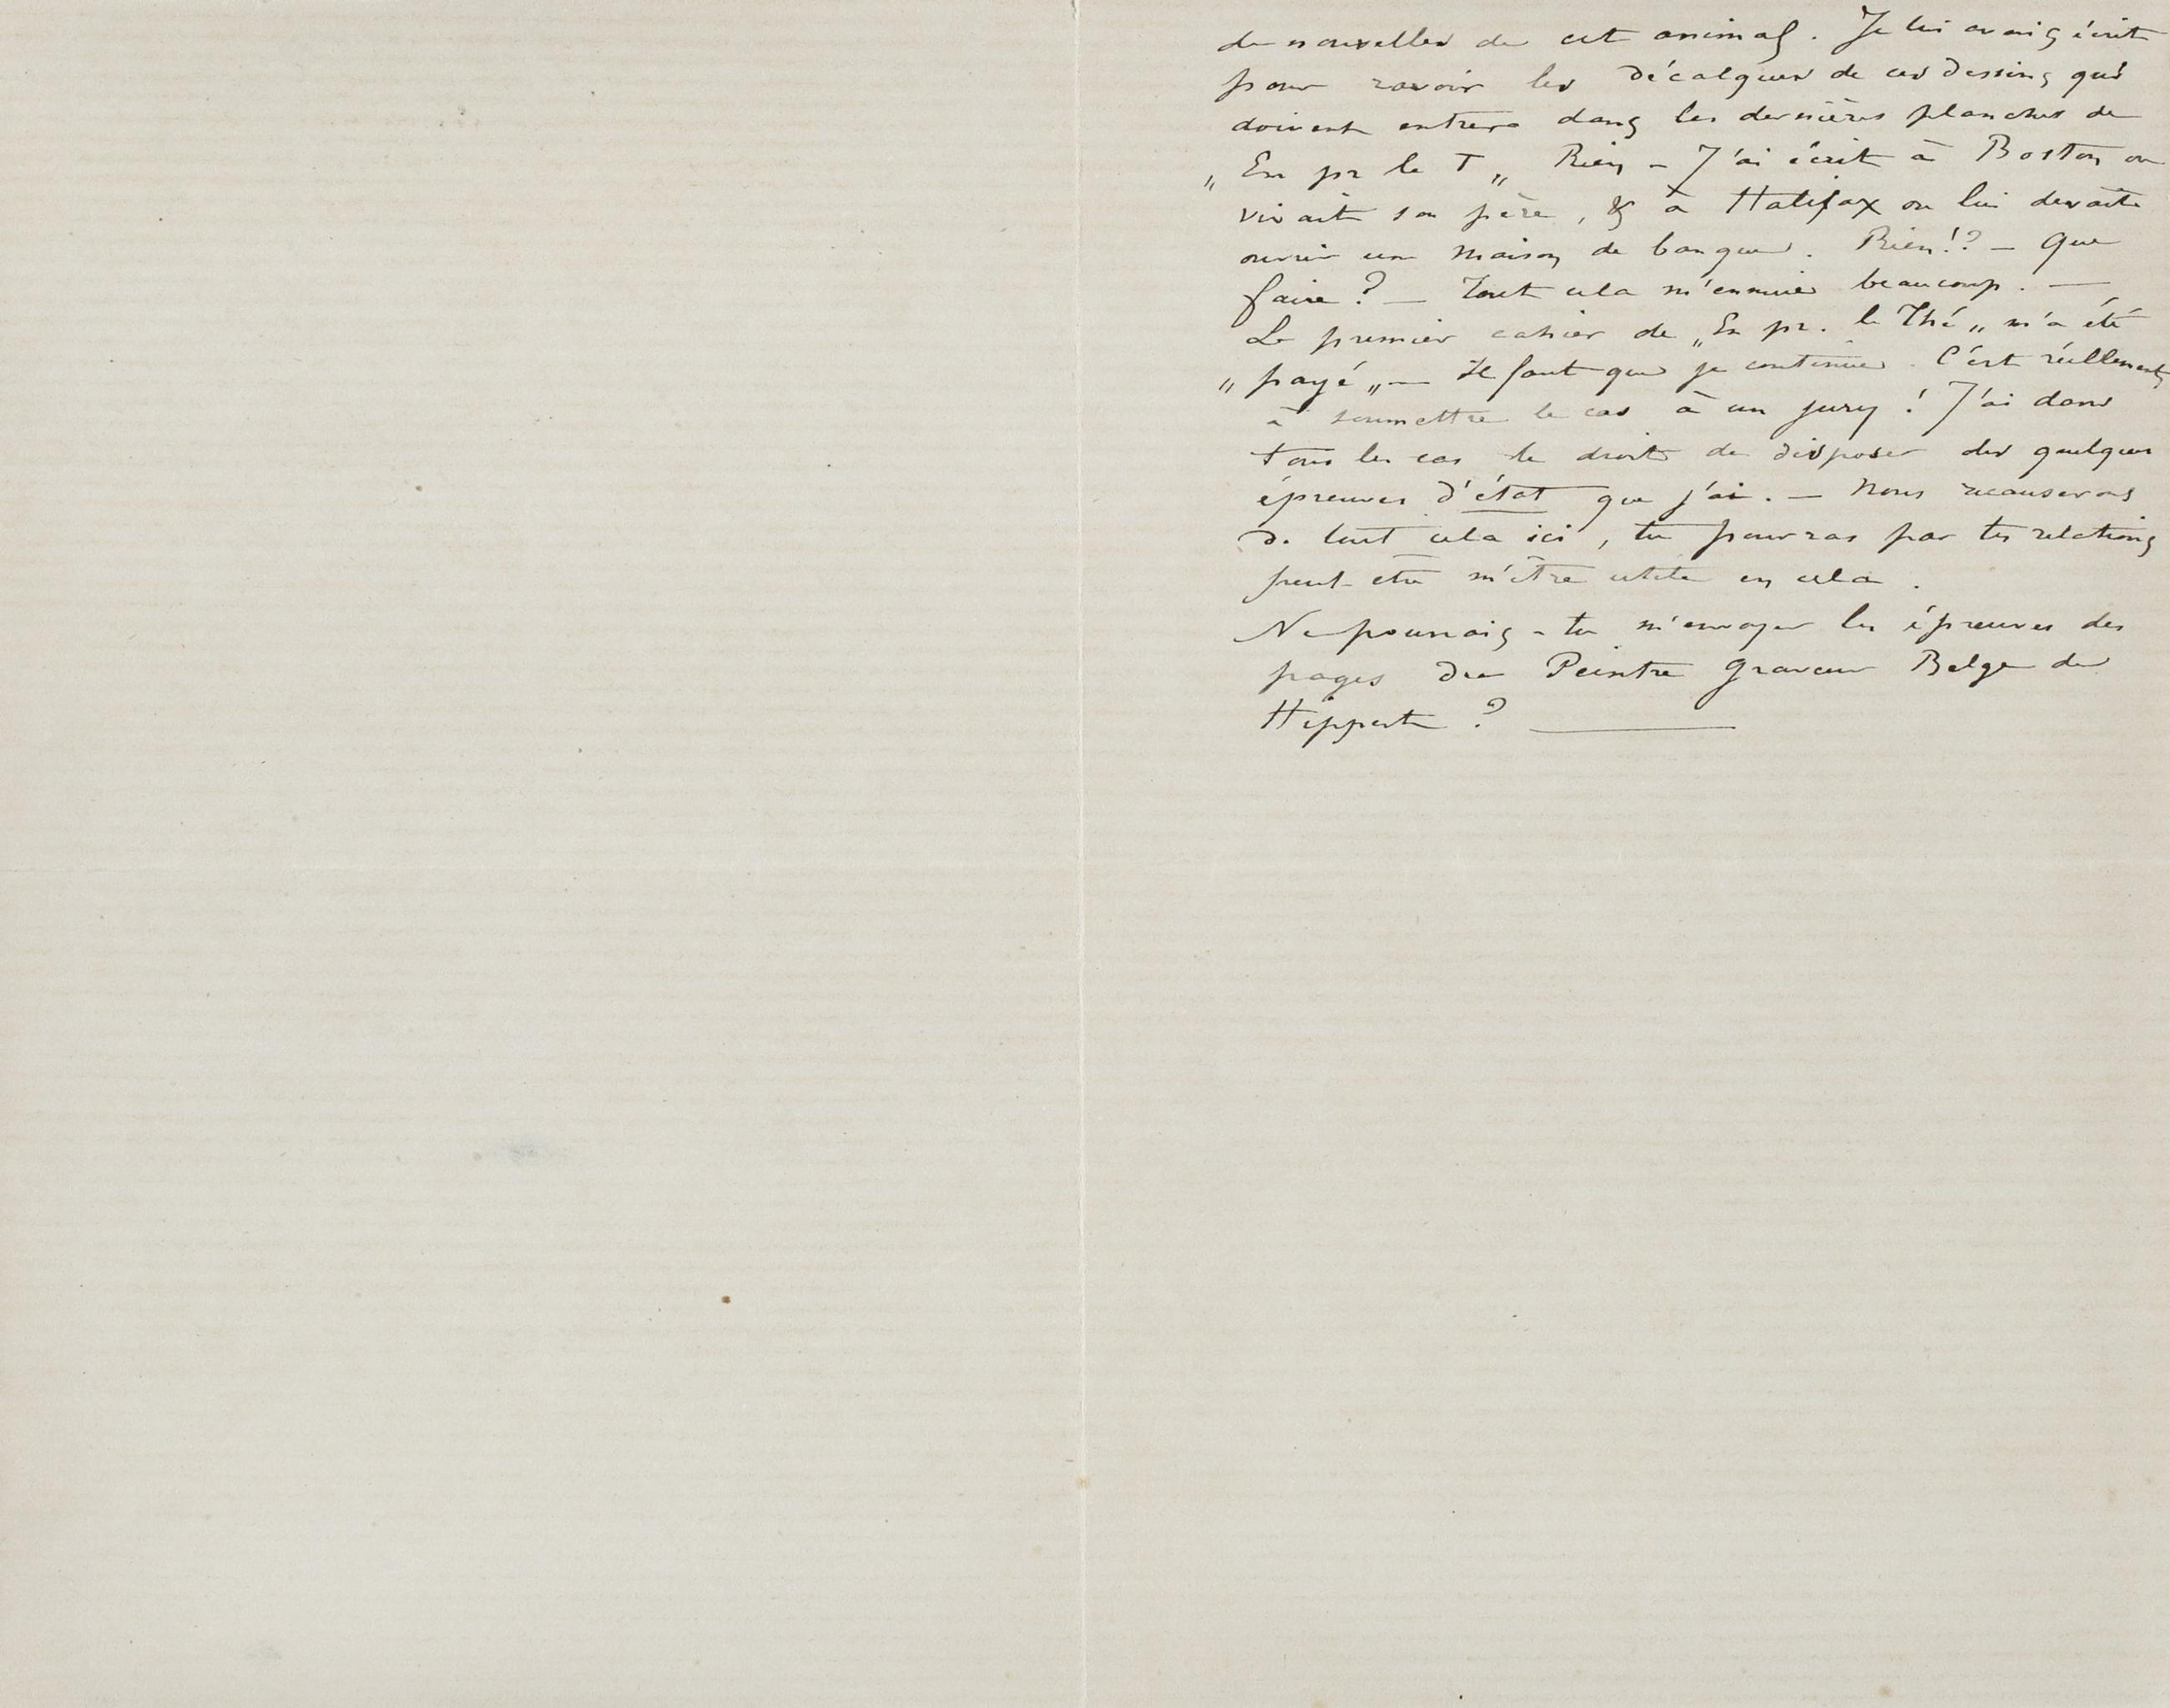 de nouvelles de cet animal. Je lui avais écrit
pour ravoir les décalques de ces dessins qui
doivent entrer dans les dernières planches de
„ En pr le T „ Rien – J'ai écrit à Boston ou
vivait son père, & à Halifax ou lui devait
ouvrir une maison de banque. Rien!? – Que
faire? – Tout cela m'ennuie beaucoup. —
Le premier cahier de „ En pr. le Thé „ m'a été
„ payé „ — Il faut que je continue. C'est réellement
à soumettre le cas à un jury! J'ai dans
tous les cas le droit de disposer des quelques
épreuves d'état que j'ai. — Nous recauserons
de tout cela ici, tu pourras par tes relations
peut-etre m'être utile en cela.
Ne pourrais-tu m'envoyer les épreuves des
pages du Peintre Graveur Belge de
Hippert? ———